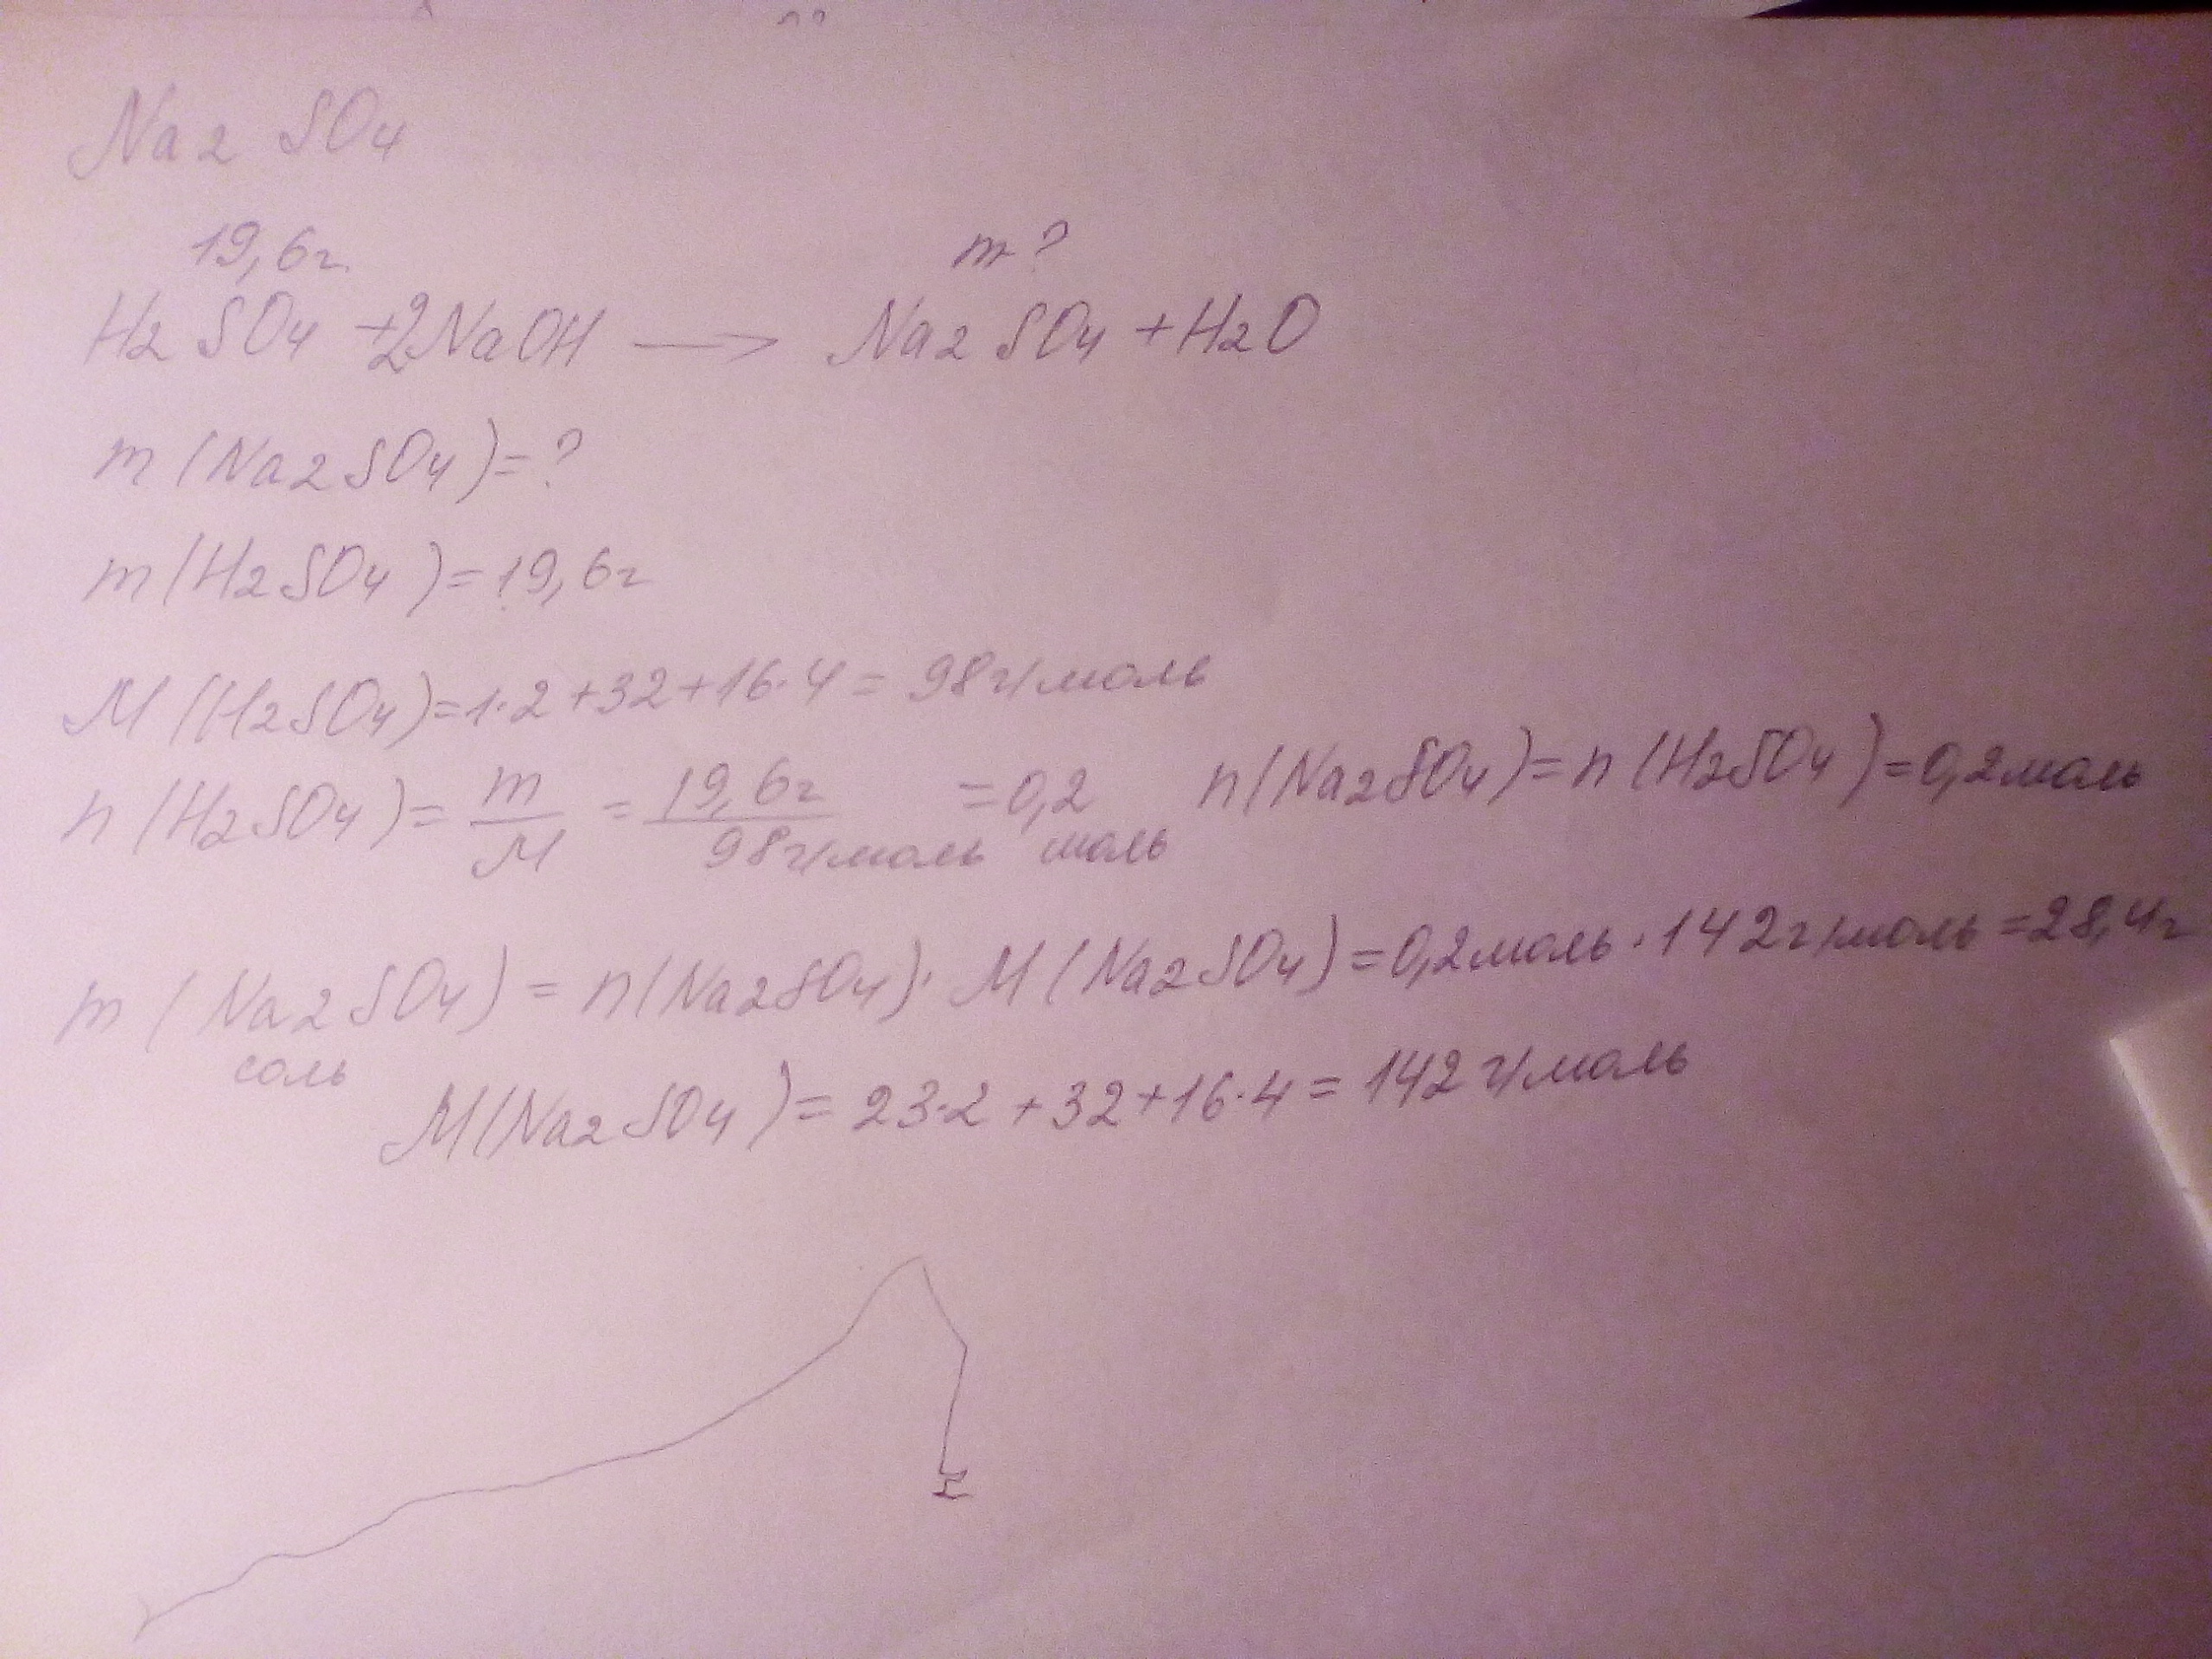 Na2 SO4
19,6г m?
H2SO4 + 2NaOH → Na2SO4 + H2O
m(Na2SO4)=?
m(H2SO4)=19,6г
M(H2SO4)=1·2+32+16·4=98г/моль
n(H2SO4)= m/M = 19,6г/98г/моль =0,2 моль n(Na2SO4)=n(H2SO4)=0,2моль
m(Na2SO4)=n(Na2SO4)·M(Na2SO4)=0,2моль·142г/моль=28,4г
соль
M(Na2SO4)=23·2+32+16·4=142г/моль